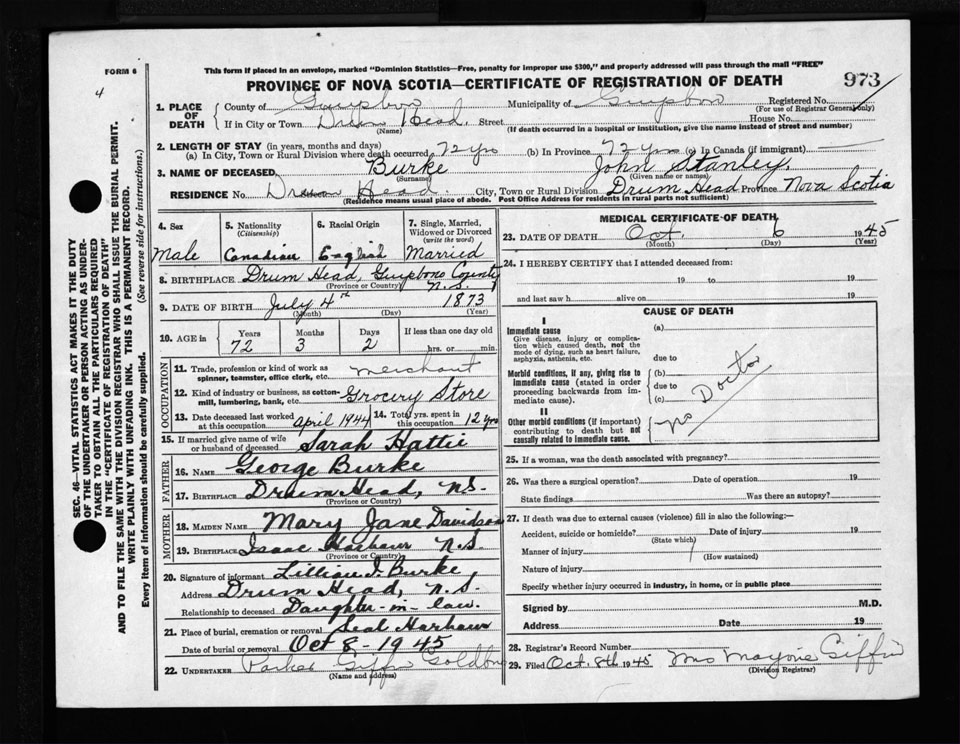 FORM 6
This form if placed in an envelope, marked "Dominion Statistics—Free, penalty for improper use $300," and properly addressed will pass through the mail "FREE"
4
PROVINCE OF NOVA SCOTIA—CERTIFICATE OF REGISTRATION OF DEATH
973
SEC. 46—VITAL STATISTICS ACT MAKES IT THE DUTY
OF THE UNDERTAKER OR PERSON ACTING AS UNDER-
TAKER TO OBTAIN ALL THE PARTICULARS REQUIRED
IN THE "CERTIFICATE OF REGISTRATION OF DEATH"
AND TO FILE THE SAME WITH THE DIVISION REGISTRAR WHO SHALL ISSUE THE BURIAL PERMIT.
WRITE PLAINLY WITH UNFADING INK. THIS IS A PERMANENT RECORD.
Every item of information should be carefully supplied. (See reverse side for instructions.)
1. PLACE OF DEATH
County of Guysboro Municipality of Guysboro Registered No.
(For use of Registrar General only)
If in City or Town Drum Head. Street House No.
(Name) (If death occurred in a hospital or institution, give the name instead of street and number)
2. LENGTH OF STAY (in years, months and days)
(a) In City, Town or Rural Division where death occurred 72 yrs (b) In Province 72 yrs (c) In Canada (if immigrant)
3. NAME OF DECEASED Burke John Stanley.
(Surname) (Given name or names)
RESIDENCE No. Drum Head. City, Town or Rural Division Drum Head Province Nova Scotia
(Residence means usual place of abode. Post Office Address for residents in rural parts not sufficient)
4. Sex
Male
5. Nationality
(Citizenship)
Canadian
6. Racial Origin
English
7. Single, Married, Widowed or Divorced
(write the word)
Married
8. BIRTHPLACE Drum Head, Guysboro County
(Province or Country) N.S.
9. DATE OF BIRTH July 4th 1873
(Month) (Day) (Year)
10. AGE in
Years Months Days If less than one day old
72 3 2 hrs. or min.
OCCUPATION
11. Trade, profession or kind of work as merchant
spinner, teamster, office clerk, etc.
12. Kind of industry or business, as cotton- Grocery Store
mill, lumbering, bank, etc.
13. Date deceased last worked at this occupation April 1944 14. Total yrs. spent in this occupation 12 yrs
15. If married give name of wife or husband of deceased Sarah Hattie
FATHER
16. NAME George Burke
17. BIRTHPLACE Drum Head, N.S.
(Province or Country)
MOTHER
18. MAIDEN NAME Mary Jane Davidson
19. BIRTHPLACE Isaac Harbour N.S.
(Province or Country)
20. Signature of informant Lillian I. Burke
Address Drum Head, N.S.
Relationship to deceased Daughter-in-law.
21. Place of burial, cremation or removal Seal Harbour
Date of burial or removal Oct 8-1945
22. UNDERTAKER Parker Giffin Goldboro
(Name and address)
MEDICAL CERTIFICATE OF DEATH
23. DATE OF DEATH Oct. 6 1945
(Month) (Day) (Year)
24. I HEREBY CERTIFY that I attended deceased from:
19 to 19
and last saw h alive on 19
CAUSE OF DEATH
I
Immediate cause
Give disease, injury or complica-
tion which caused death, not the
mode of dying, such as heart failure,
asphyxia, asthenia, etc.
Morbid conditions, if any, giving rise to
immediate cause (stated in order
proceeding backwards from im-
mediate cause).
II
Other morbid conditions (if important)
contributing to death but not
causally related to immediate cause.
(a)
due to
(b)
due to
(c)
no Doctor
25. If a woman, was the death associated with pregnancy?
26. Was there a surgical operation? Date of operation 19
State findings Was there an autopsy?
27. If death was due to external causes (violence) fill in also the following:—
Accident, suicide or homicide? Date of injury 19
(State which)
Manner of injury
(How sustained)
Nature of injury
Specify whether injury occurred in industry, in home, or in public place
Signed by M.D.
Address Date 19
28. Registrar's Record Number
29. Filed Oct. 8th 1945 Mrs Marjorie Giffin
(Division Registrar)